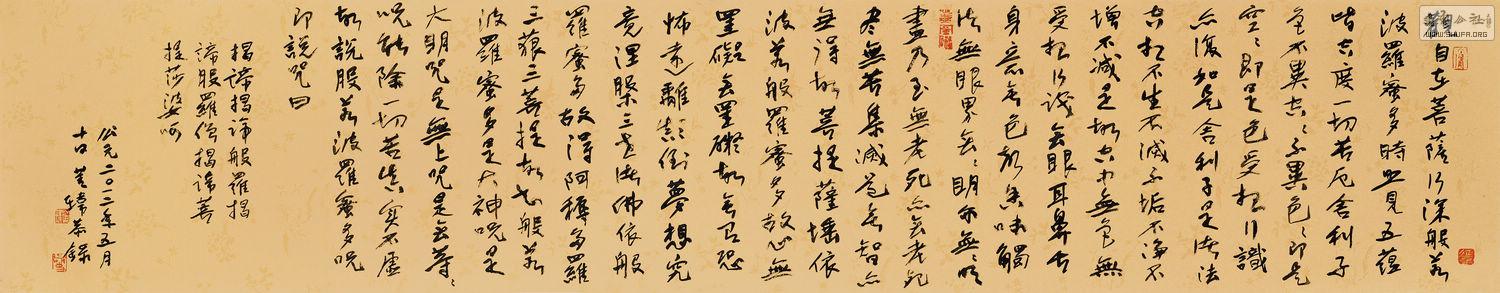 觀自在菩薩行深般若
波羅蜜多時照見五蘊
皆空度一切苦厄舍利子
色不異空空不異色色即是
空空即是色受想行識
亦復如是舍利子是諸法
空相不生不滅不垢不淨不
增不減是故空中無色無
受想行識無眼耳鼻舌
身意無色聲香味觸
法無眼界無無明亦無無明
盡乃至無老死亦無老死
盡無苦集滅道無智亦
無得故菩提薩埵依
波若般羅蜜多故心無
罣礙無罣礙故無有恐
怖遠離顛倒夢想究
竟涅槃三世諸佛依般
羅蜜多故得阿耨多羅
三藐三菩提故知般若
波羅蜜多是大神咒是
大明咒是無上咒是無等等
咒能除一切苦真實不虛
故說般若波羅蜜多咒
即說咒曰
揭諦揭諦般羅揭
諦般羅僧揭諦菩
提莎婆呵
公元二〇一二年五月
恭錄
WWW.SHUFA.ORG